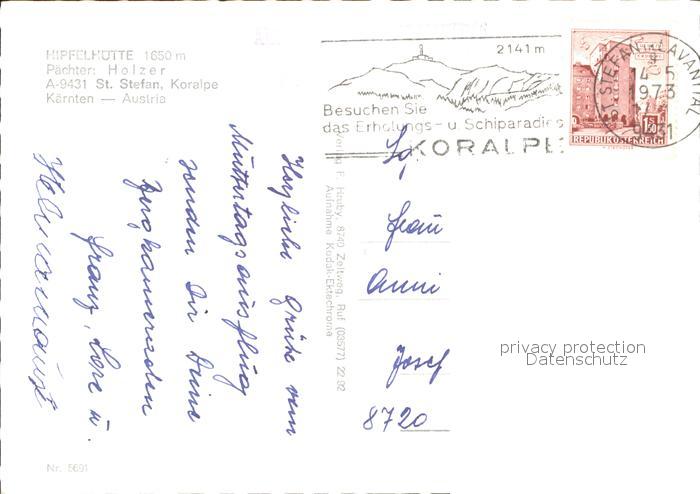 HIPFELHÜTTE 1650 m
Pächter: Holzer
A-9431 St. Stefan, Koralpe
Kärnten — Austria
2141 m
Besuchen Sie
das Erholungs- u. Schiparadies
KORALPE
ST. STEFAN LAVANTTAL
14. 5.
1973
9431
1.50
REPUBLIK ÖSTERREICH
Herzliche Grüße vom
Muttertagsausflug
senden Dir Deine
Franz, Lore u.
Verlag F. Hruby, 8740 Zeltweg, Ruf (03577) 22 92
Aufnahme Kodak-Ektachrome
Frau
Anni
Josef
8720
privacy protection
Datenschutz
Nr. 5691